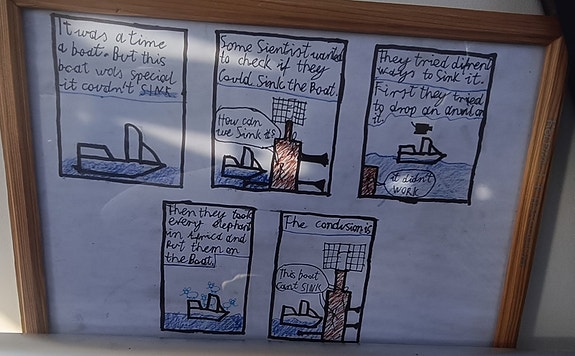 It was a time
a boat. But this
boat wols special
it couldn't SINK
Some Sientist wanted
to check if they
Could Sink the Boat.
How can
we Sink it?
They tried difrent
ways to Sink it.
First they tried
to drop an anvil on
it
it didn't
WORK
Then they took
every elephant
in africa and
Put them on
the Boat.
The conclusion is
This boat
cant SINK